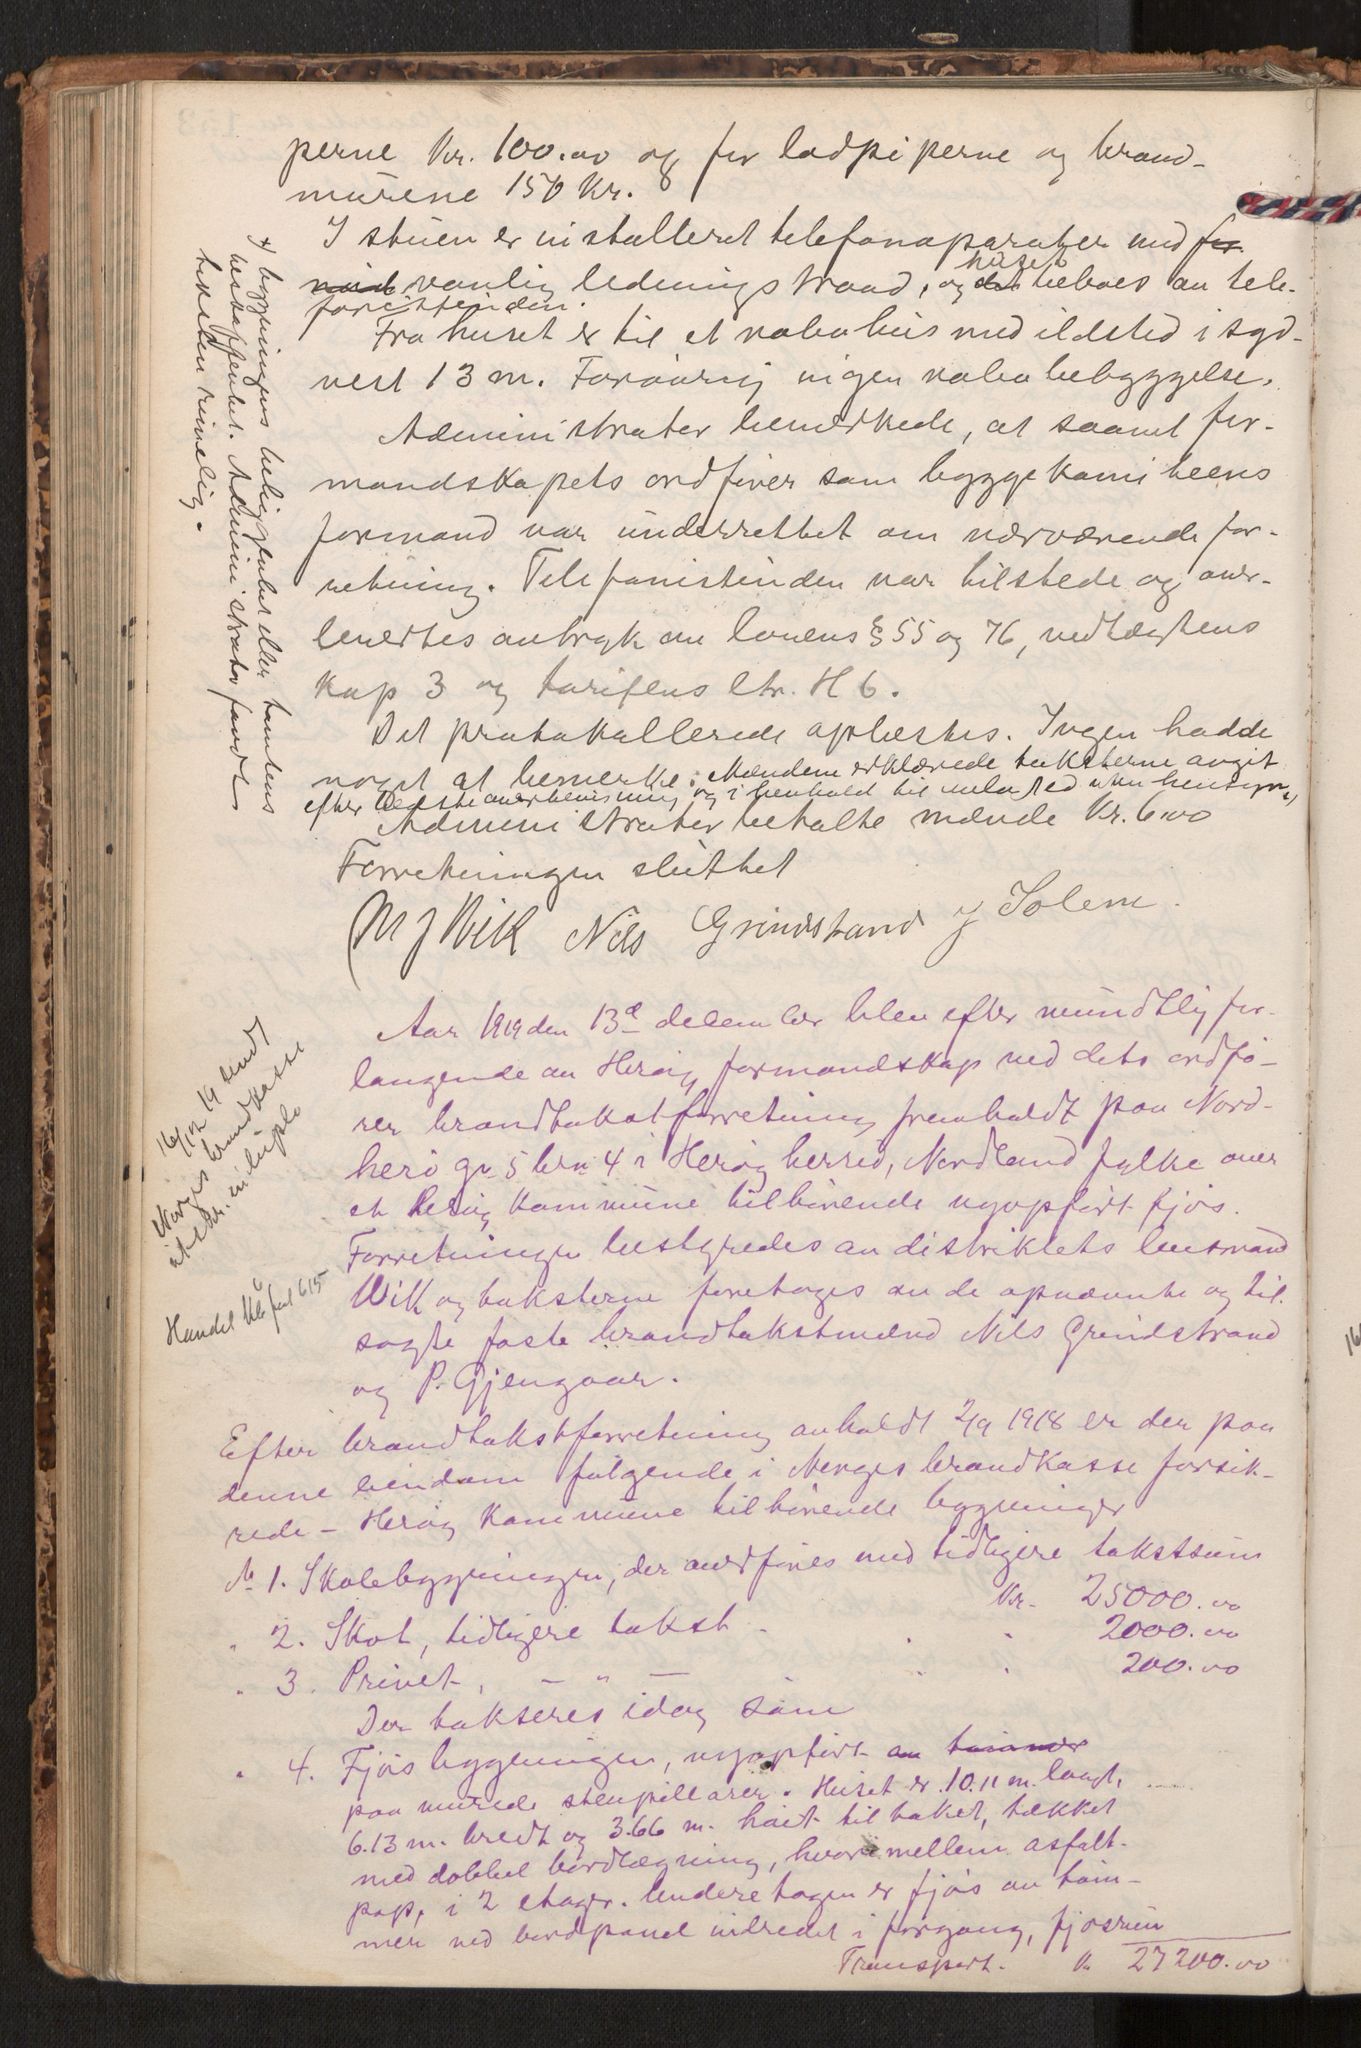 perne Kr. 100.00 og for lodpiperne og brand-
murene 150 Kr.
I stuen er installeret telefonaparater med for
med vanlig ledningstraad, og det huset beboes av tele-
fonistinden.
Fra huset er til et nabohus med ildsted i syd-
vest 13 m. Forøvrig ingen nabobebyggelse.
Administrator bemerkede, at saavel for-
mandskapets ordfører som byggekomiteens
formand var underrettet om nærværende for-
retning. Telefonistinden var tilstede og over-
leveredes avtryk av lovens § 55 og 76, vedtægtens
Kap 3 og tarifens ltr. H 6.
Det protokollerede oplæstes. Ingen hadde
noget at bemerke. Mændene erklærede taksterne avgit
efter bedste overbevisning og i henhold til uten hensyn
Administrator betalte mænde Kr. 6.00
Forretningen sluttet
M J Wik Nils Grindstrand J Solem.
x) bygningens beliggenhet eller tomtens
beskaffenhet. Administrator fandt
taksten rimelig.
Aar 1919 den 13de december blev efter mundtlig for-
langende av Herøy formandskap ved dets ordfø-
rer brandtakstforretning fremholdt paa Nord-
herø gr 5 brn 4 i Herøy herred, Nordland fylke over
et Herøy Kommune tilhørende nyopført fjøs.
Forretningen bestyredes av distriktets lensmand
Wik og taksterne foretoges av de opnævnte og til-
sagte faste brandtakstmænd Nils Grindstrand
og P. Gjengaar.
16/12 19 sendt
Norges brandkasse
utskr. in duplo
Handel Kl 6 fol 615
Efter brandtakstforretning avholdt 2/9 1918 er der paa
denne eiendom følgende i Norges brandkasse forsik-
rede - Herøy Kommune tilhørende bygninger
№ 1. Skolebygningen, der anføres med tidligere takstsum
Kr. 25000.00
" 2. Skot, tidligere takst - " " 2000.00
" 3. Privet, - " - " " 200.00
Der takseres idag som
" 4. Fjøsbygningen, nyopført av tømmer
paa murede stenpillarer. Huset er 10.11 m. langt,
6.13 m. bredt og 3.66 m. høit til taket, tækket
med dobbel bordlægning, hvorimellem asfalt-
pap, i 2 etager. Underetagen er fjøs av tøm-
mer med bordpanel indredet i forgang, fjosrum
Transport. Kr 27200.00